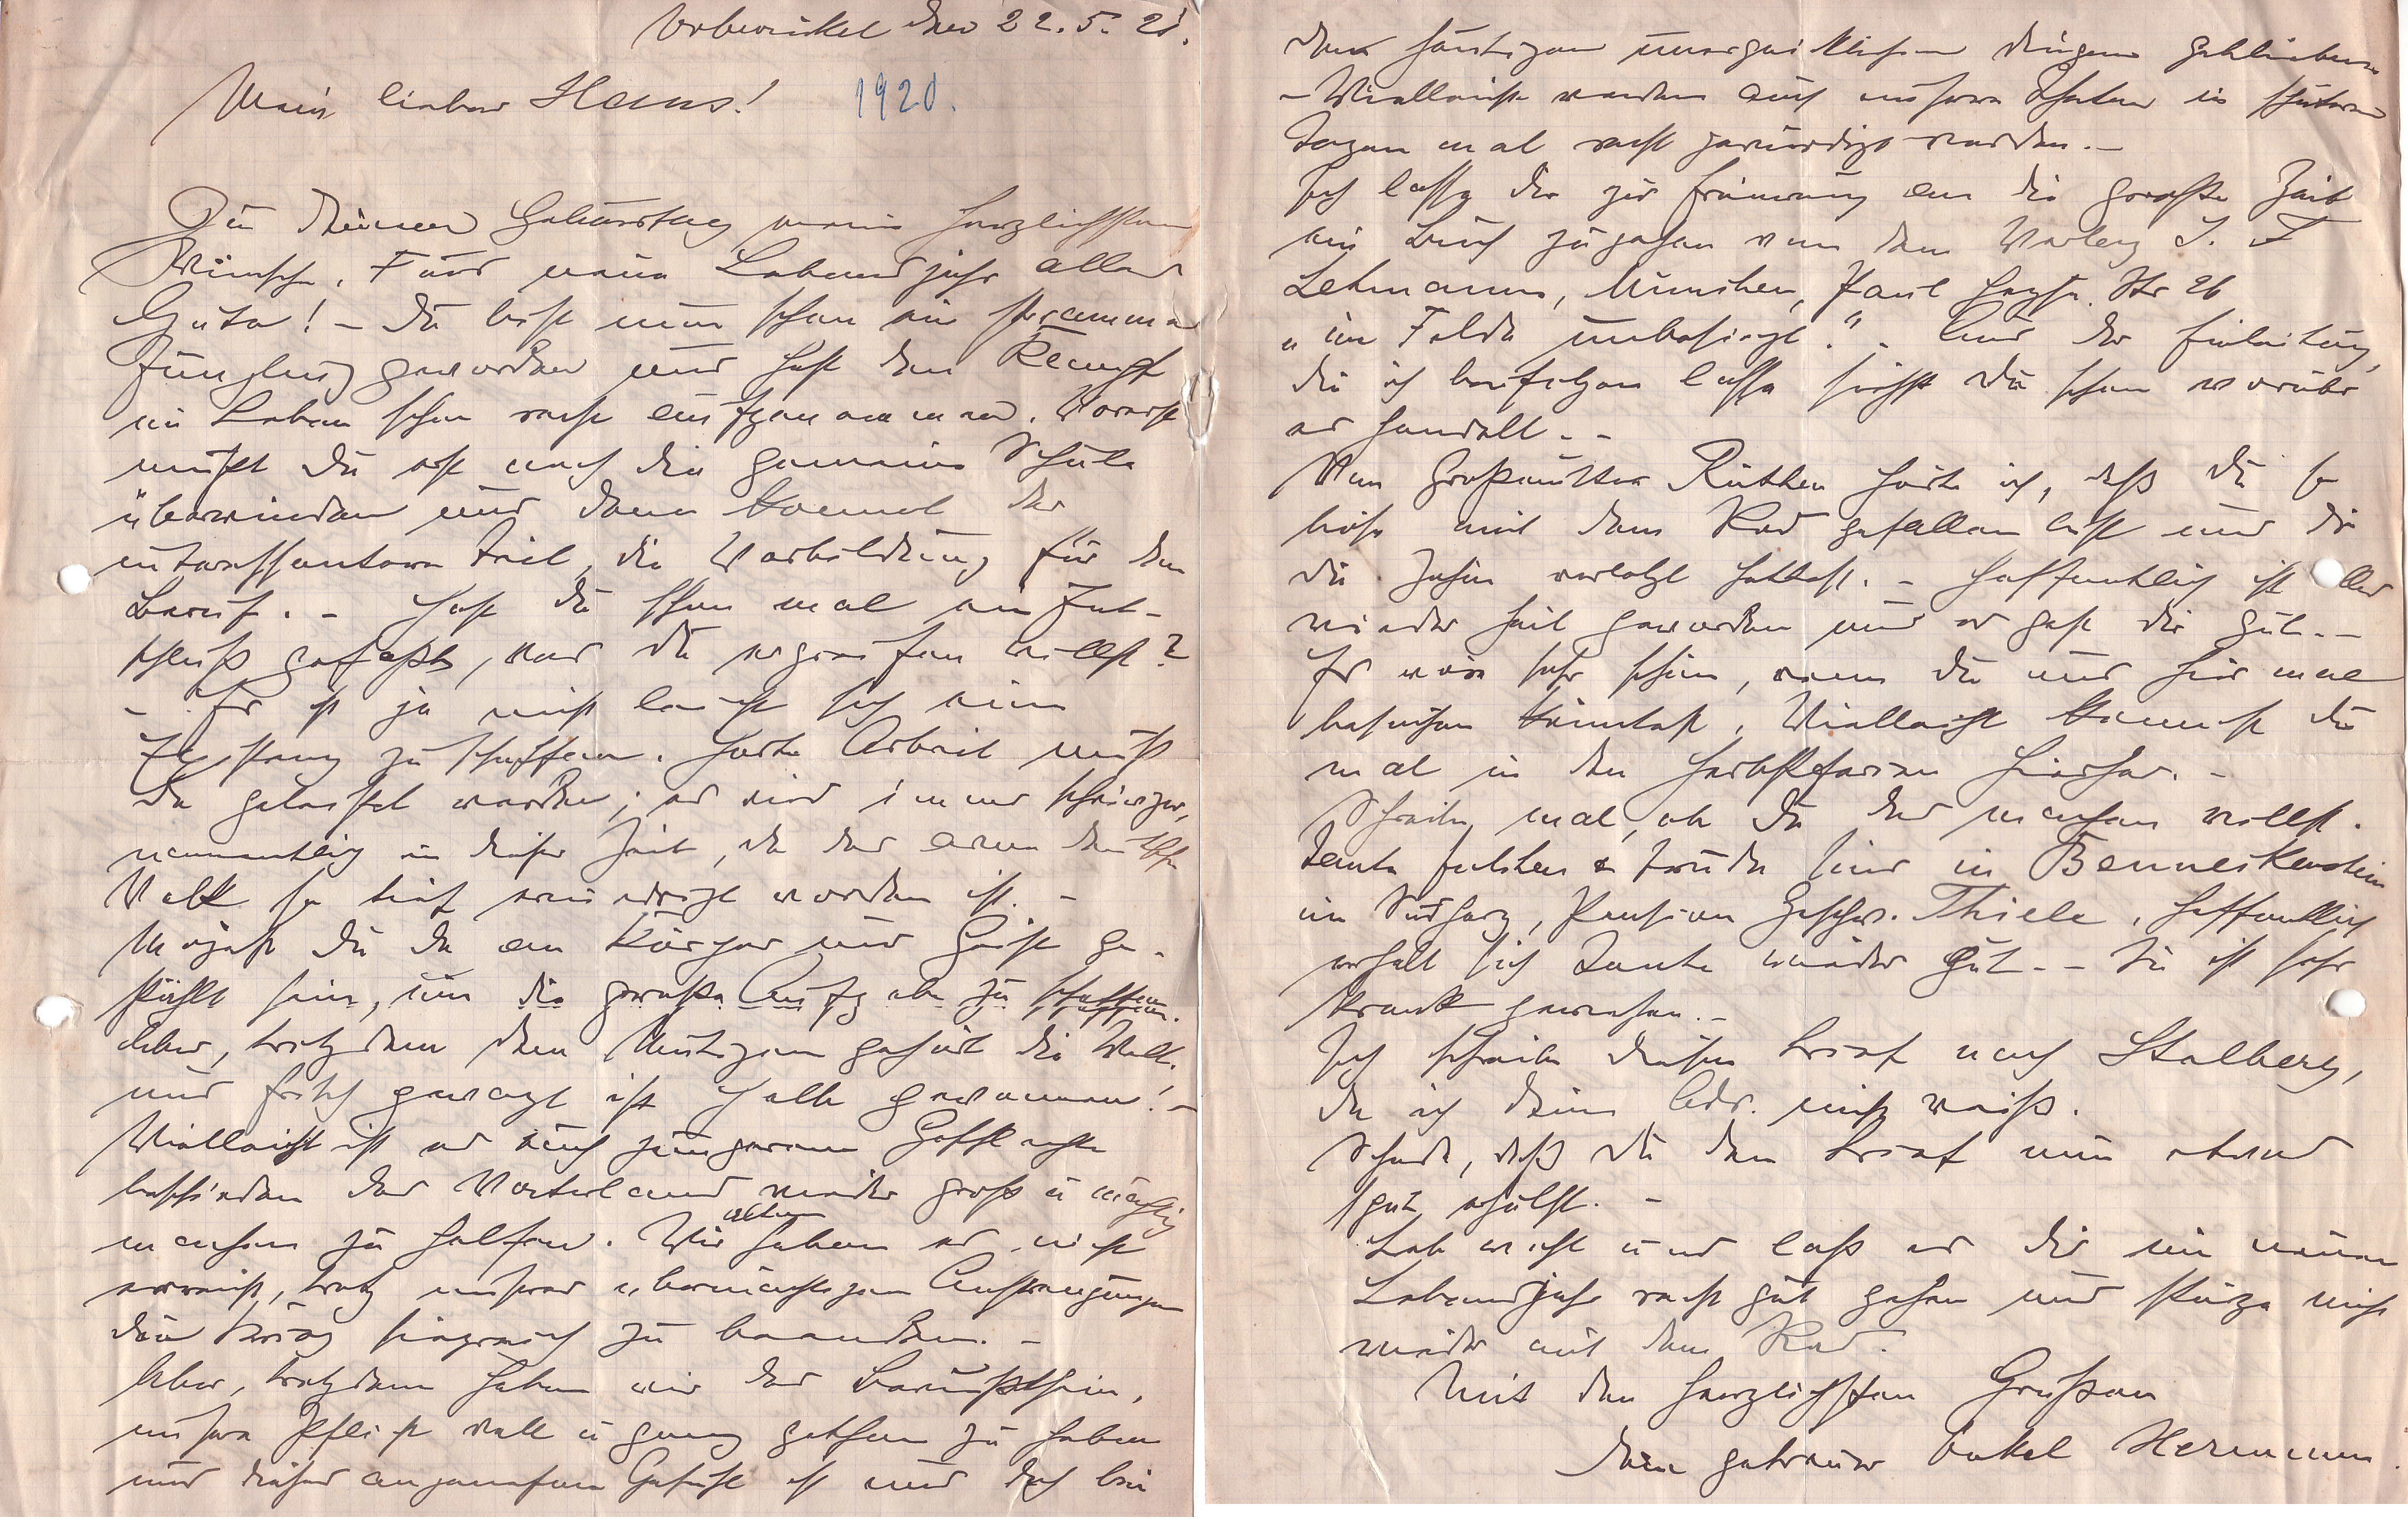 Vohwinkel den 22. 5. 21.
1920.
Mein lieber Hans!
Zu Deinem Geburtstag meine herzlichsten
Wünsche. Fürs neue Lebensjahr alles
Gute! – Du bist nun schon ein strammer
Jüngling geworden und hast den Kampf
im Leben schon recht aufgenommen. Vorerst
mußt Du erst noch die gemeine Schule
überwinden und dann kommt der
interessantere Teil, die Vorbildung für den
Beruf. – Hast Du schon mal ein Ent-
schluß gefaßt, was Du ergreifen willst?
– Es ist ja nicht leicht sich eine
Existenz zu schaffen. Harte Arbeit muß
da geleistet werden; es wird immer schwieriger,
namentlich in dieser Zeit, da das arme deutsche
Volk so tief erniedrigt worden ist. –
Mögest Du da an Körper und Geist ge-
stählt sein, um die große Aufgabe zu schaffen.
Aber, trotzdem dem Mutigen gehört die Welt.
und frisch gewagt ist halb gewonnen! –
Vielleicht ist es Euch jüngerem Geschlechte
beschieden das Vaterland wieder groß u mächtig
machen zu helfen. Wir alten haben es nicht
erreicht, trotz unserer übermächtigen Anstrengungen
den Krieg siegreich zu beenden. –
Aber, trotzdem haben wir das Bewußtsein,
unsere Pflicht voll u ganz gethan zu haben
und dieses angenehme Gefühl ist uns doch bei
den heutigen unerquicklichen Dingen geblieben
– Vielleicht werden auch unsere Thaten in späteren
Tagen mal recht gewürdigt werden. –
Ich lasse Dir zur Erinnerung an die große Zeit
ein Buch zugehen von dem Verlag J. F
Lehmanns, München, Paul Heyse. Str 26
„im Felde unbesiegt“. Aus der Einleitung,
die ich beifolgen lasse siehst Du schon worüber
es handelt. –
Von Großmutter Rüthen hörte ich, daß Du so
böse mit dem Rad gefallen bist und Dir
die Zähne verletzt hattest. – Hoffentlich ist alles
wieder heil geworden und es geht Dir gut. –
Es wäre sehr schön, wenn Du uns hier mal
besuchen könntest. Vielleicht kommst Du
mal in den Herbstferien hierher. –
Schreibe mal, ob Du das machen willst.
Tante Julchen & Trude sind in Benneckenstein
im Südharz, Pension Geschw. Thiele. Hoffentlich
erholt sich Tante wieder gut. – Sie ist sehr
krank gewesen. –
Ich schreibe diesen Brief nach Stolberg,
da ich Deine Adr. nicht weiß.
Schade, daß Du den Brief nun etwas
spät erhälst. –
Leb wohl und laß es Dir im neuen
Lebensjahr recht gut gehen und stürze nicht
wieder mit dem Rad.
Mit den herzlichsten Grüßen
Dein getreuer Onkel Hermann.